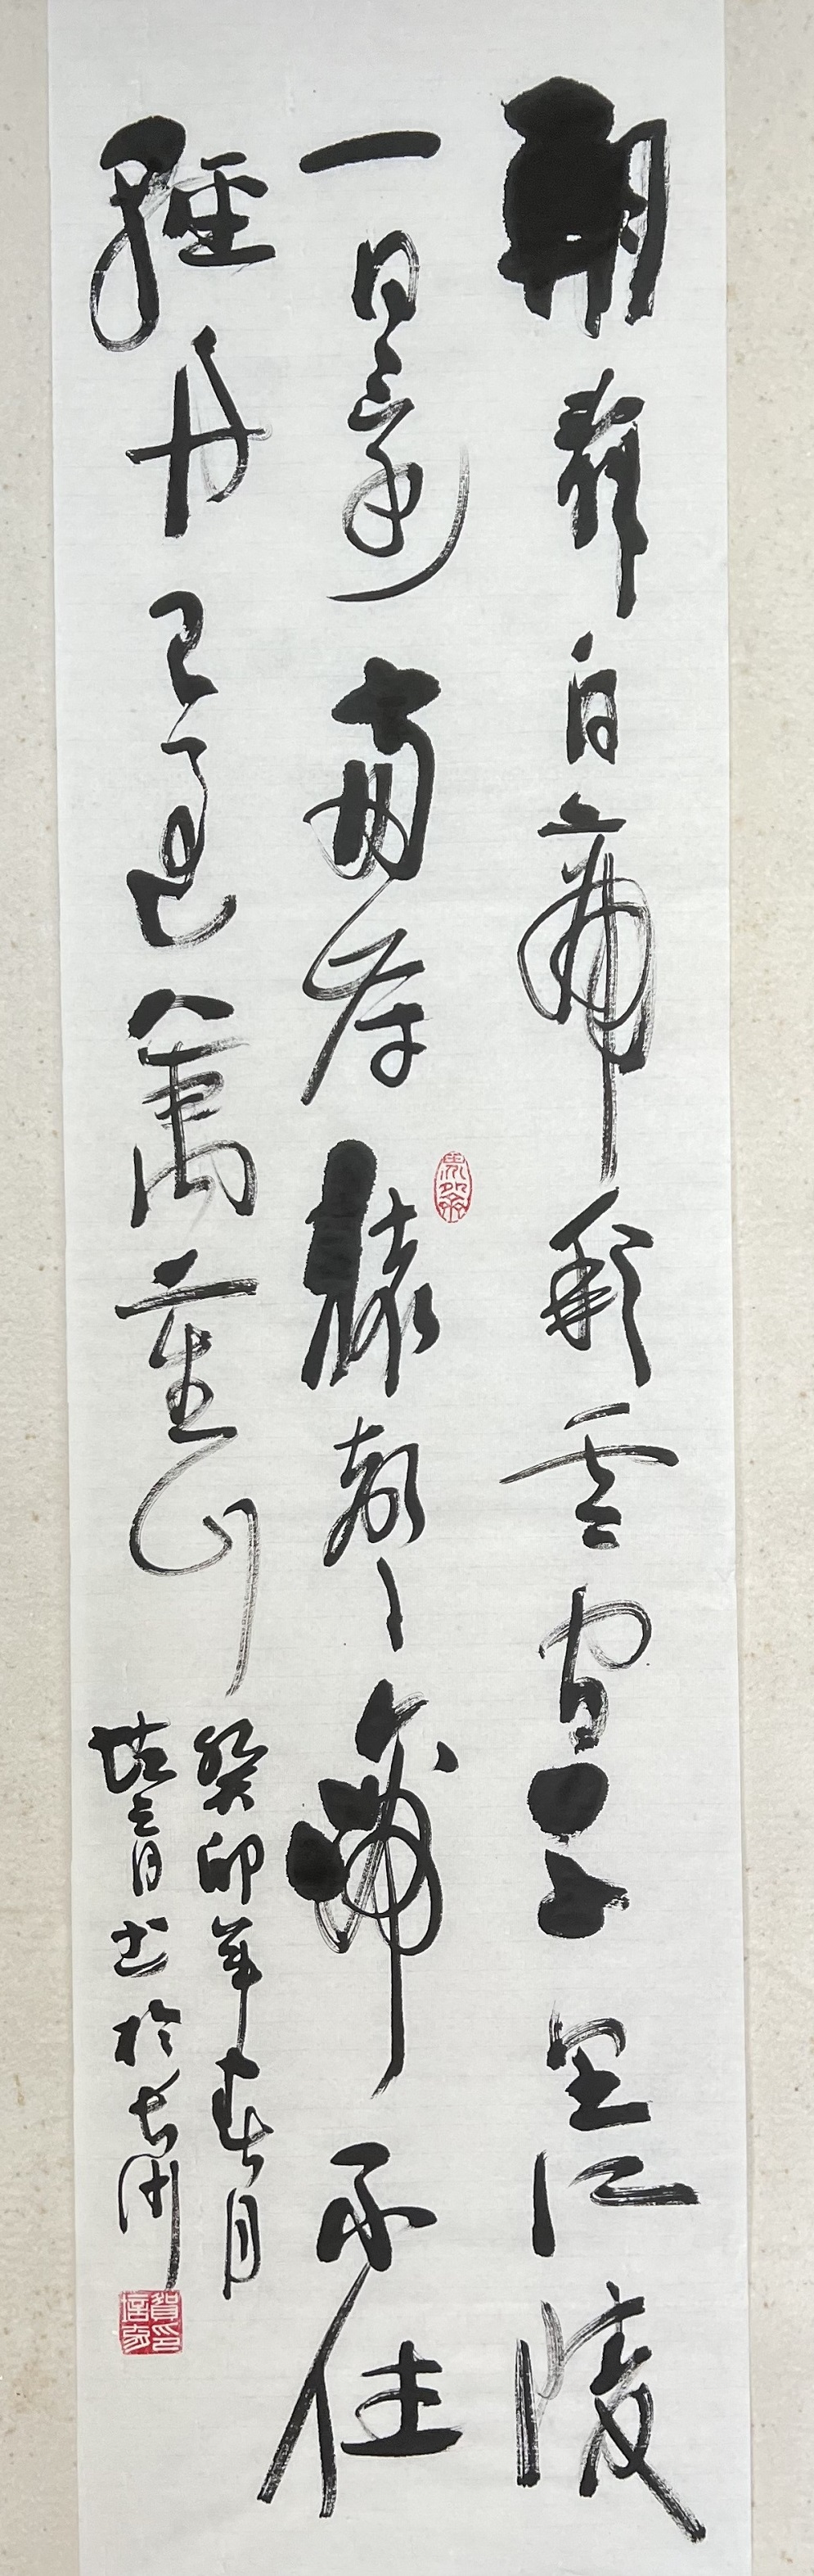 朝辭白帝彩雲間千里江陵
一日還兩岸猿聲啼不住
輕舟已過萬重山
癸卯年春月
书於长沙